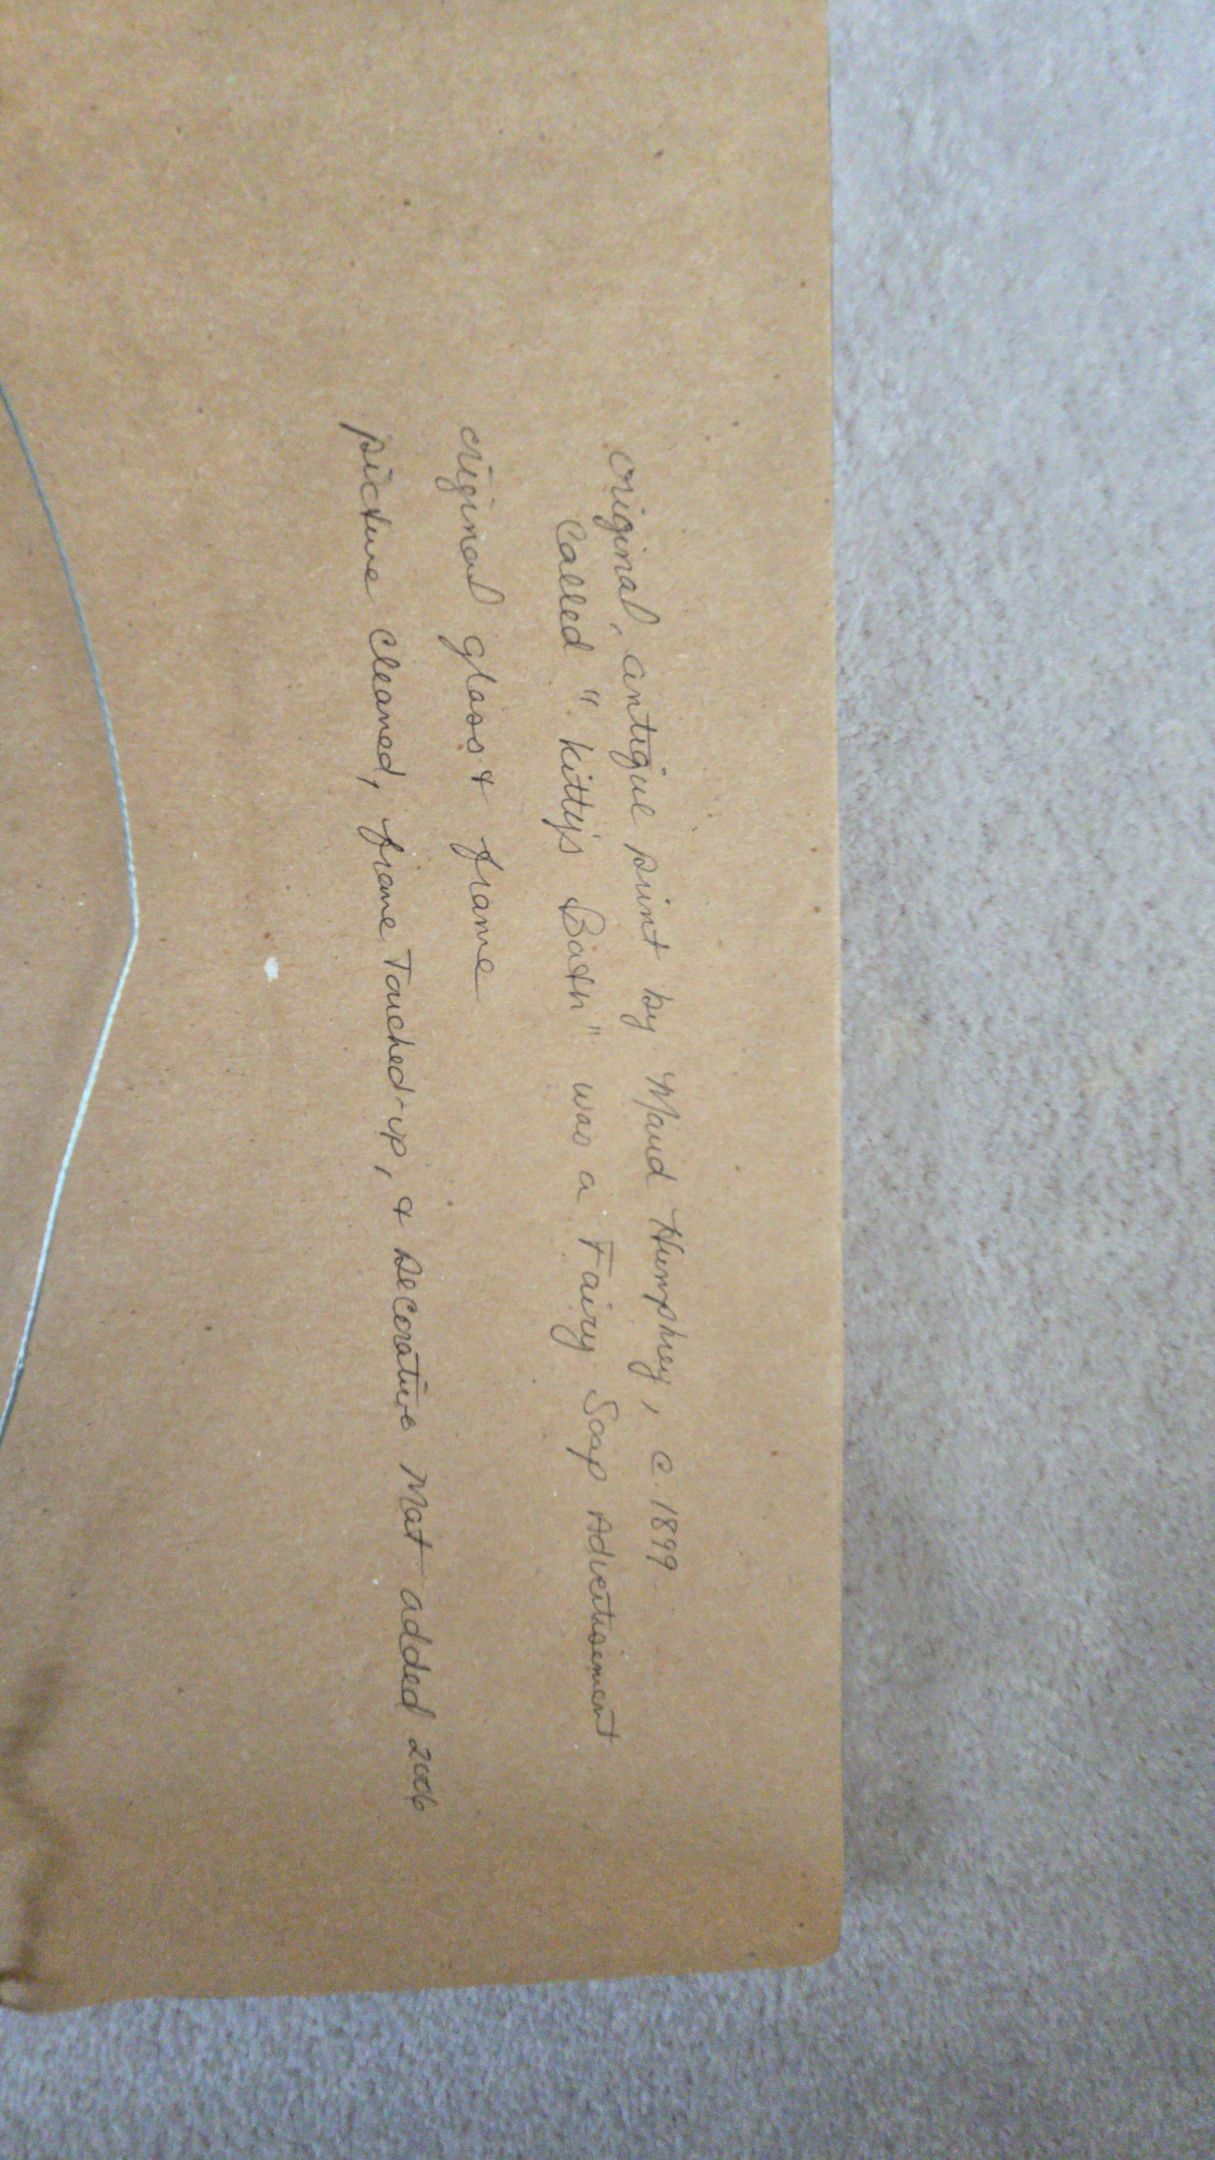 original, antique print by Maud Humphrey, c. 1899
Called "Kitty's Bath" was a Fairy Soap Advertisement
original glass & frame
picture cleaned, frame Touched-up, & Decorative Mat added 2006